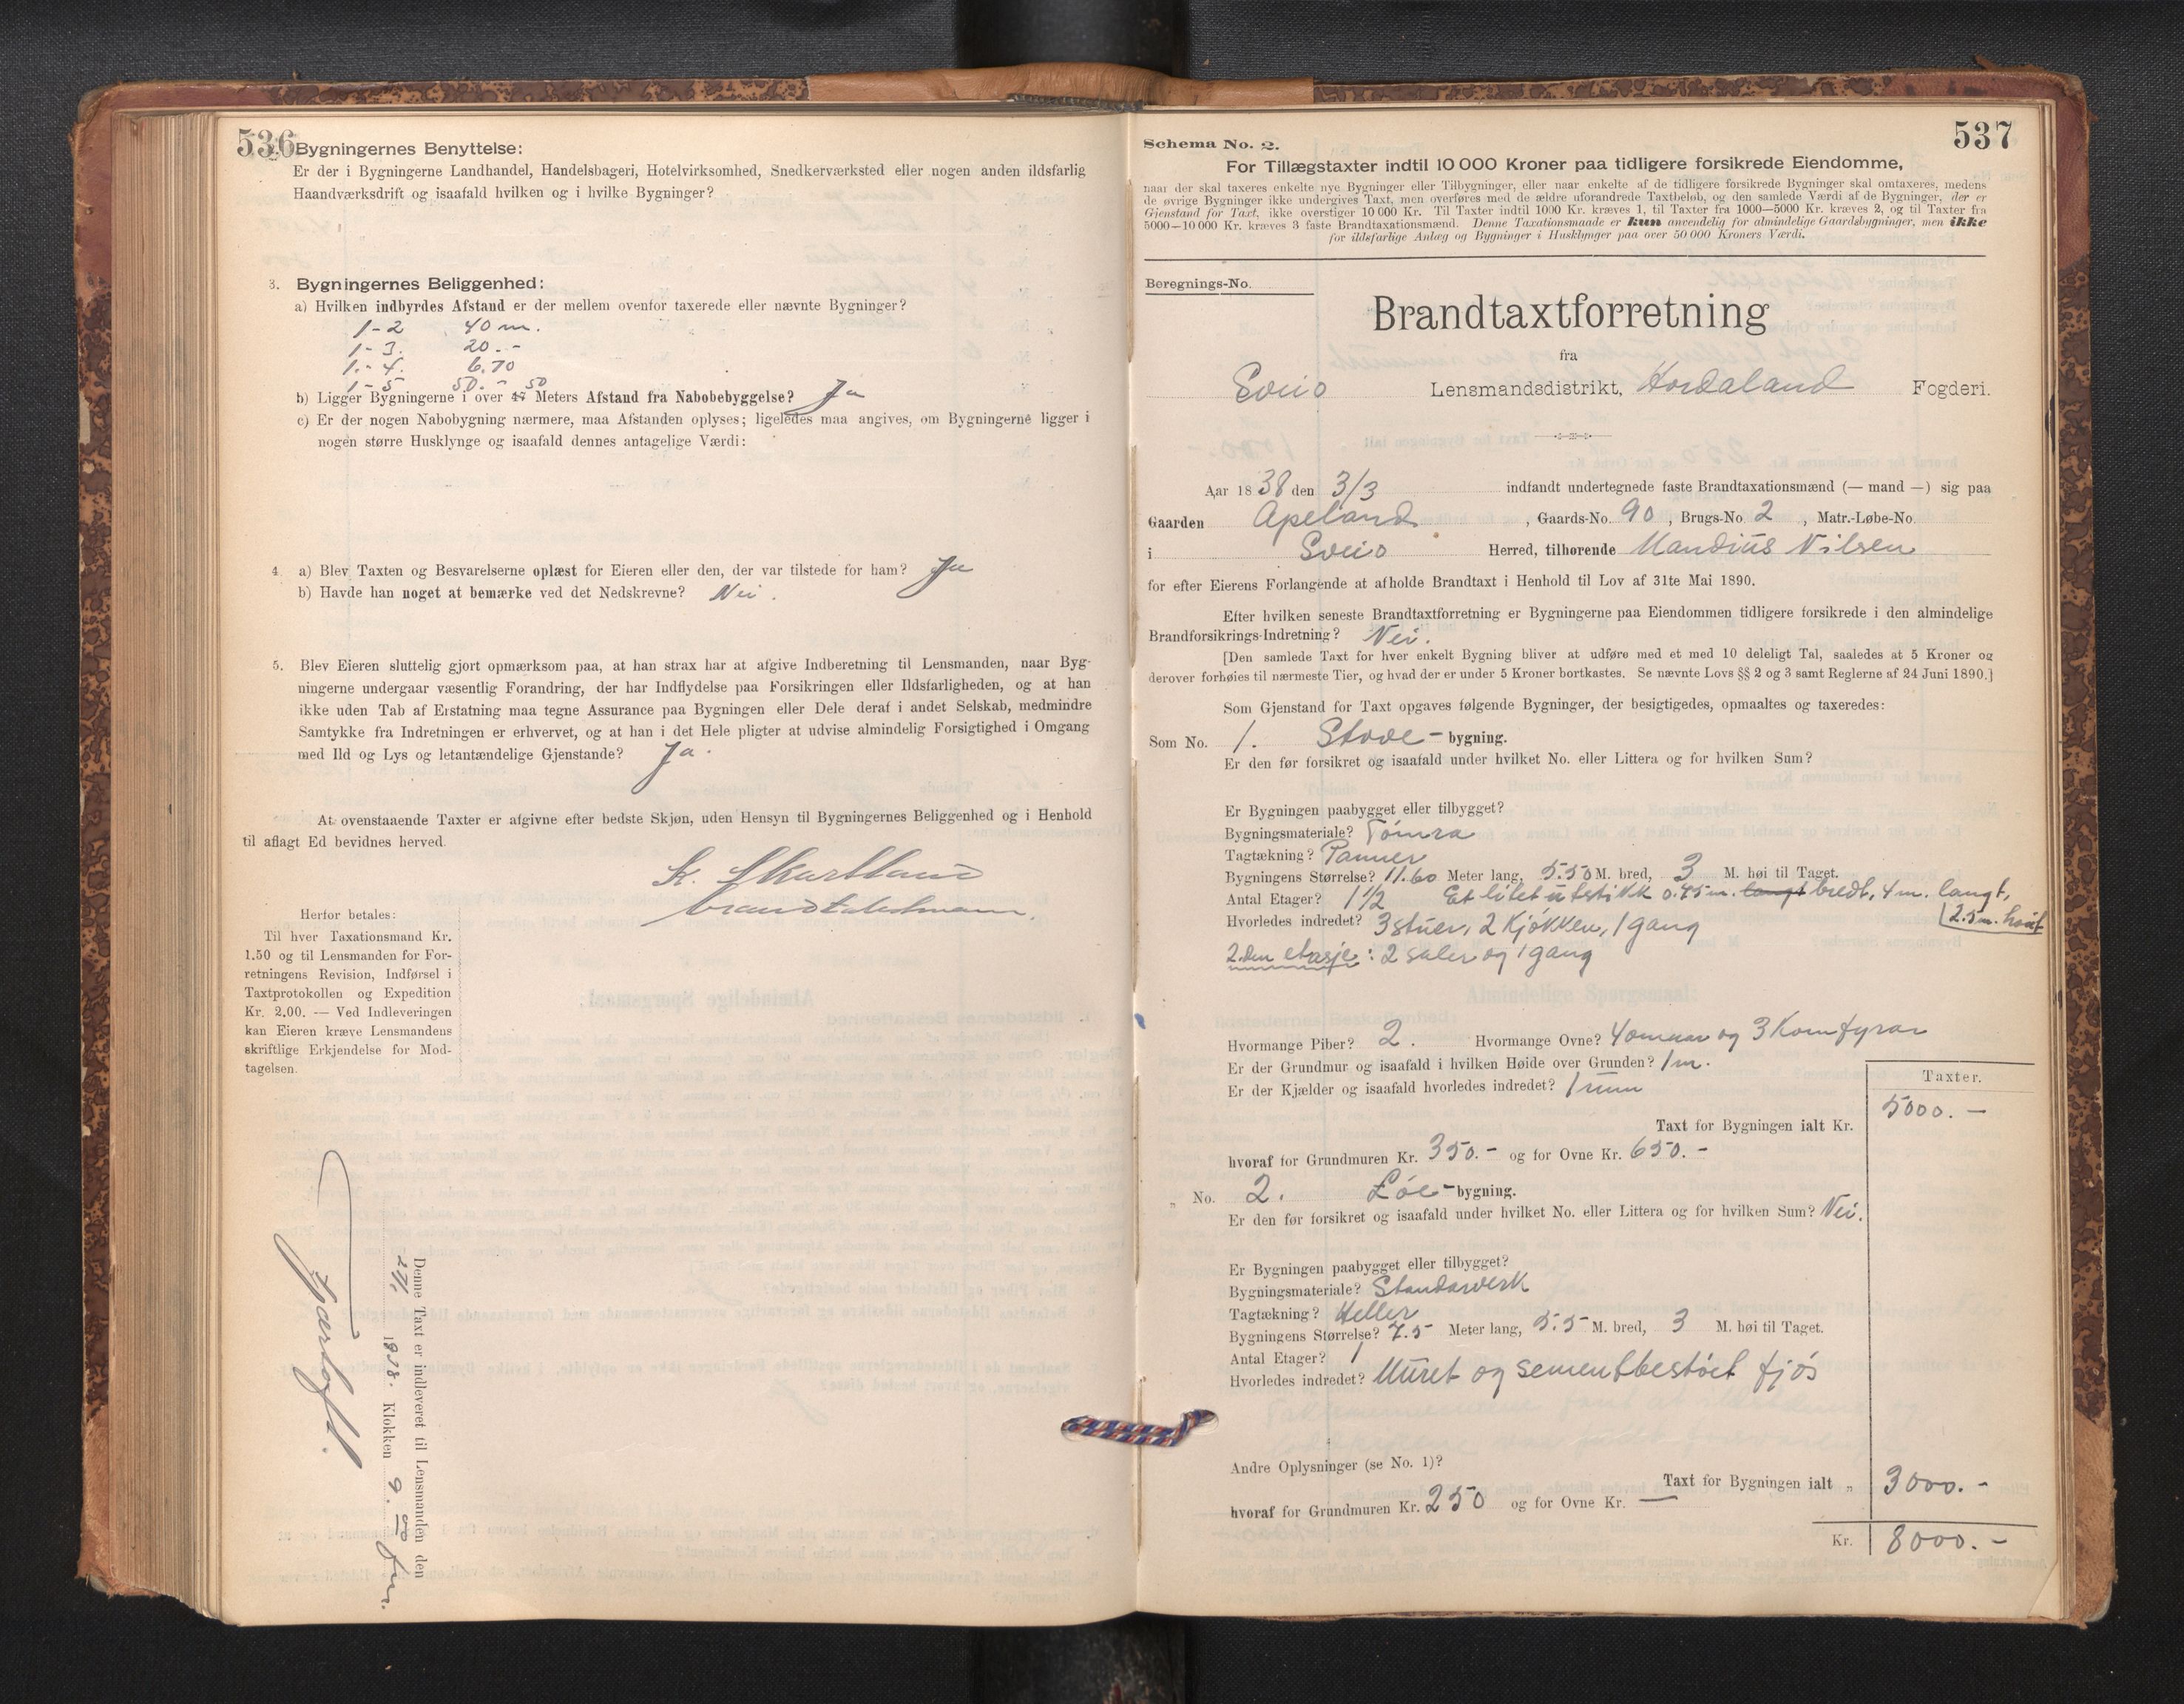 536
Bygningernes Benyttelse:
Er der i Bygningerne Landhandel, Handelsbageri, Hotelvirksomhed, Snedkerværksted eller nogen anden ildsfarlig
Haandværksdrift og isaafald hvilken og i hvilke Bygninger?
3. Bygningernes Beliggenhed:
a) Hvilken indbyrdes Afstand er der mellem ovenfor taxerede eller nævnte Bygninger?
1-2 40 m.
1-3. 20.-
1.-4. 6.70
1-5 50.-
50
b) Ligger Bygningerne i over Meters Afstand fra Nabobebyggelse? Ja
c) Er der nogen Nabobygning nærmere, maa Afstanden oplyses; ligeledes maa angives, om Bygningerne ligger i
nogen større Husklynge og isaafald dennes antagelige Værdi:
4. a) Blev Taxten og Besvarelserne oplæst for Eieren eller den, der var tilstede for ham? Ja
b) Havde han noget at bemærke ved det Nedskrevne? Nei.
5. Blev Eieren sluttelig gjort opmærksom paa, at han strax har at afgive Indberetning til Lensmanden, naar Byg-
ningerne undergaar væsentlig Forandring, der har Indflydelse paa Forsikringen eller Ildsfarligheden, og at han
ikke uden Tab af Erstatning maa tegne Assurance paa Bygningen eller Dele deraf i andet Selskab, medmindre
Samtykke fra Indretningen er erhvervet, og at han i det Hele pligter at udvise almindelig Forsigtighed i Omgang
med Ild og Lys og letantændelige Gjenstande? Ja.
At ovenstaaende Taxter er afgivne efter bedste Skjøn, uden Hensyn til Bygningernes Beliggenhed og i Henhold
til aflagt Ed bevidnes herved.
Herfor betales:
Til hver Taxationsmand Kr.
1.50 og til Lensmanden for For-
retningens Revision, Indførsel i
Taxtprotokollen og Expedition
Kr. 2.00. — Ved Indleveringen
kan Eieren kræve Lensmandens
skriftlige Erkjendelse for Mod-
tagelsen.
Denne Taxt er indleveret til Lensmanden den
1938. Klokken 9.
537
Schema No. 2.
For Tillægstaxter indtil 10 000 Kroner paa tidligere forsikrede Eiendomme,
naar der skal taxeres enkelte nye Bygninger eller Tilbygninger, eller naar enkelte af de tidligere forsikrede Bygninger skal omtaxeres, medens
de øvrige Bygninger ikke undergives Taxt, men overføres med de ældre uforandrede Taxtbeløb, og den samlede Værdi af de Bygninger, der er
Gjenstand for Taxt, ikke overstiger 10 000 Kr. Til Taxter indtil 1000 Kr. kræves 1, til Taxter fra 1000—5000 Kr. kræves 2, og til Taxter fra
5000—10 000 Kr. kræves 3 faste Brandtaxationsmænd. Denne Taxationsmaade er kun anvendelig for almindelige Gaardsbygninger, men ikke
for ildsfarlige Anlæg og Bygninger i Husklynger paa over 50 000 Kroners Værdi.
Beregnings-No.
Brandtaxtforretning
fra
Sveio Lensmandsdistrikt, Hordaland Fogderi.
Aar 1838 den 3/3 indfandt undertegnede faste Brandtaxationsmænd (— mand —) sig paa
Gaarden Apeland, Gaards-No. 90, Brugs-No. 2, Matr.-Løbe-No.
i Sveio Herred, tilhørende Mandius Nilsen
for efter Eierens Forlangende at afholde Brandtaxt i Henhold til Lov af 31te Mai 1890.
Efter hvilken seneste Brandtaxtforretning er Bygningerne paa Eiendommen tidligere forsikrede i den almindelige
Brandforsikrings-Indretning? Nei.
[Den samlede Taxt for hver enkelt Bygning bliver at udføre med et med 10 deleligt Tal, saaledes at 5 Kroner og
derover forhøies til nærmeste Tier, og hvad der er under 5 Kroner bortkastes. Se nævnte Lovs §§ 2 og 3 samt Reglerne af 24 Juni 1890.]
Som Gjenstand for Taxt opgaves følgende Bygninger, der besigtigedes, opmaaltes og taxeredes:
Som No. 1. Stove-bygning.
Er den før forsikret og isaafald under hvilket No. eller Littera og for hvilken Sum?
Er Bygningen paabygget eller tilbygget?
Bygningsmateriale? Tømra
Tagtækning? Panner
Bygningens Størrelse? 11.60 Meter lang, 5.50 M. bred, 3 M. høi til Taget.
Antal Etager? 1 1/2 Et litet utstikk 0.45 m. langt bredt, 4 m. langt,
2.5 m. høit
Hvorledes indredet? 3 stuer, 2 kjøkken, 1 gang
2.den etasje: 2 saler og 1 gang
Hvormange Piber? 2. Hvormange Ovne? 4 omnar og 3 Komfyrar
Er der Grundmur og isaafald i hvilken Høide over Grunden? 1 m.
Er der Kjælder og isaafald hvorledes indredet? 1 rum
Taxter.
Taxt for Bygningen ialt Kr. 5000.—
hvoraf for Grundmuren Kr. 350.- og for Ovne Kr. 650.-
" No. 2. Løe-bygning.
Er den før forsikret og isaafald under hvilket No. eller Littera og for hvilken Sum? Nei.
Er Bygningen paabygget eller tilbygget?
Bygningsmateriale? Standarverk
Tagtækning? Heller
Bygningens Størrelse? 7.5 Meter lang, 5.5 M. bred, 3 M. høi til Taget.
Antal Etager? 1
Hvorledes indredet? Muret og sementbestøit fjøs
Andre Oplysninger (se No. 1)?
Taxt for Bygningen ialt " 3000.-
hvoraf for Grundmuren Kr. 250 og for Ovne Kr. —
Kr. 8000.-